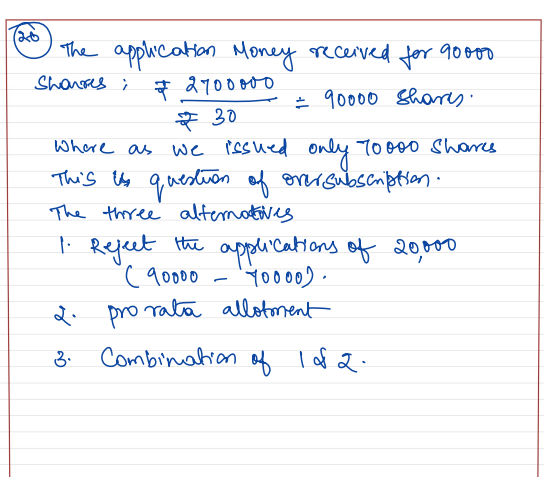 26 The application Money received for 90000
Shares ; ₹ 2700000
₹ 30
= 90000 Shares.
Where as we issued only 70000 Shares
This is question of oversubscription.
The three alternatives
1. Reject the applications of 20,000
(90000 - 70000).
2. pro rata allotment
3. Combination of 1 & 2.